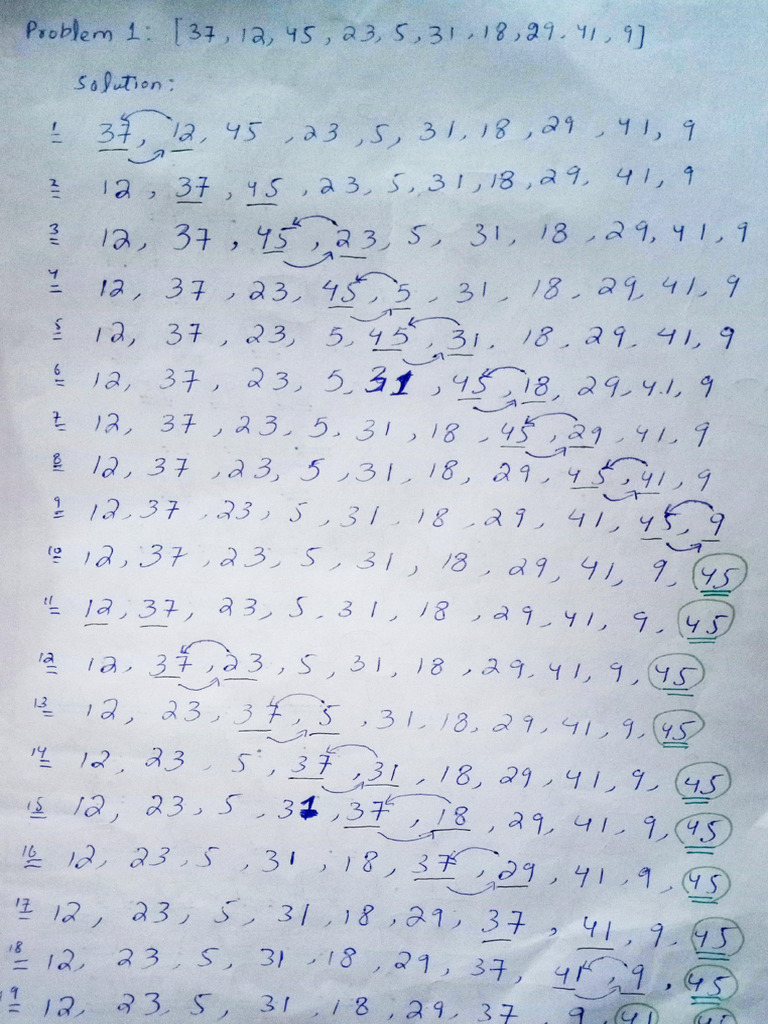 Problem 1: [37, 12, 45, 23, 5, 31, 18, 29, 41, 9]
Solution:
1 37, 12, 45, 23, 5, 31, 18, 29, 41, 9
2 12, 37, 45, 23, 5, 31, 18, 29, 41, 9
3 12, 37, 45, 23, 5, 31, 18, 29, 41, 9
4 12, 37, 23, 45, 5, 31, 18, 29, 41, 9
5 12, 37, 23, 5, 45, 31, 18, 29, 41, 9
6 12, 37, 23, 5, 31, 45, 18, 29, 41, 9
7 12, 37, 23, 5, 31, 18, 45, 29, 41, 9
8 12, 37, 23, 5, 31, 18, 29, 45, 41, 9
9 12, 37, 23, 5, 31, 18, 29, 41, 45, 9
10 12, 37, 23, 5, 31, 18, 29, 41, 9, 45
11 12, 37, 23, 5, 31, 18, 29, 41, 9, 45
12 12, 37, 23, 5, 31, 18, 29, 41, 9, 45
13 12, 23, 37, 5, 31, 18, 29, 41, 9, 45
14 12, 23, 5, 37, 31, 18, 29, 41, 9, 45
15 12, 23, 5, 31, 37, 18, 29, 41, 9, 45
16 12, 23, 5, 31, 18, 37, 29, 41, 9, 45
17 12, 23, 5, 31, 18, 29, 37, 41, 9, 45
18 12, 23, 5, 31, 18, 29, 37, 41, 9, 45
19 12, 23, 5, 31, 18, 29, 37, 9, 41, 45